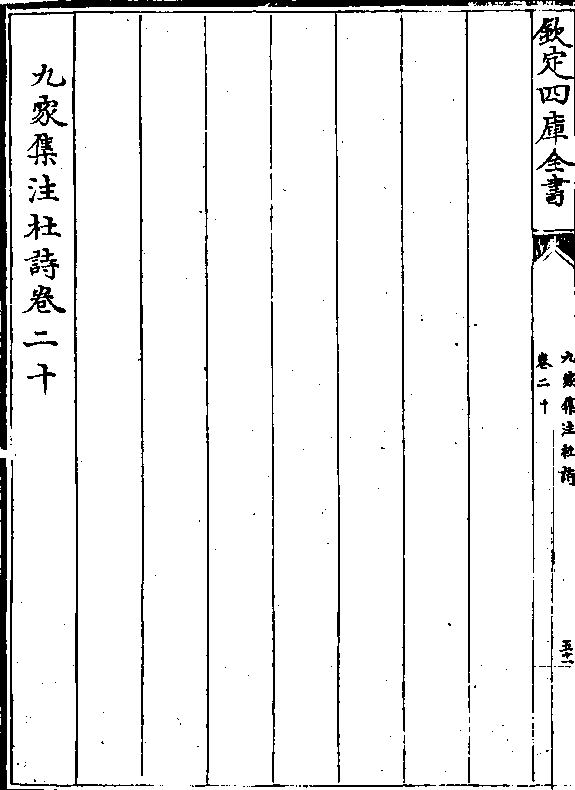 欽定四庫全書
九家集注杜詩
卷二十
五十一
九家集注杜詩卷二十